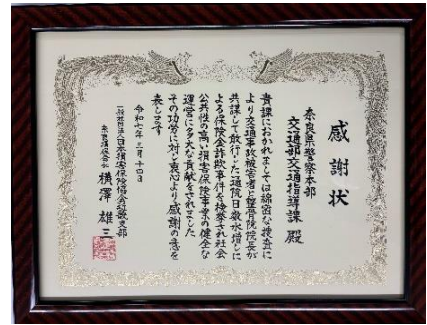 感謝状
奈良県警察本部
交通部交通指導課 殿
貴課におかれましては綿密な捜査に
より交通事故被害者と整骨院院長が
共謀して敢行した通院日数水増しに
よる保険金詐欺事件を検挙され社会
公共性の高い損害保険事業の健全な
運営に多大な貢献をされました
その功労に対し衷心より感謝の意を
表します
令和七年三月十四日
一般社団法人日本損害保険協会近畿支部
奈良損保会会長 横澤 雄三